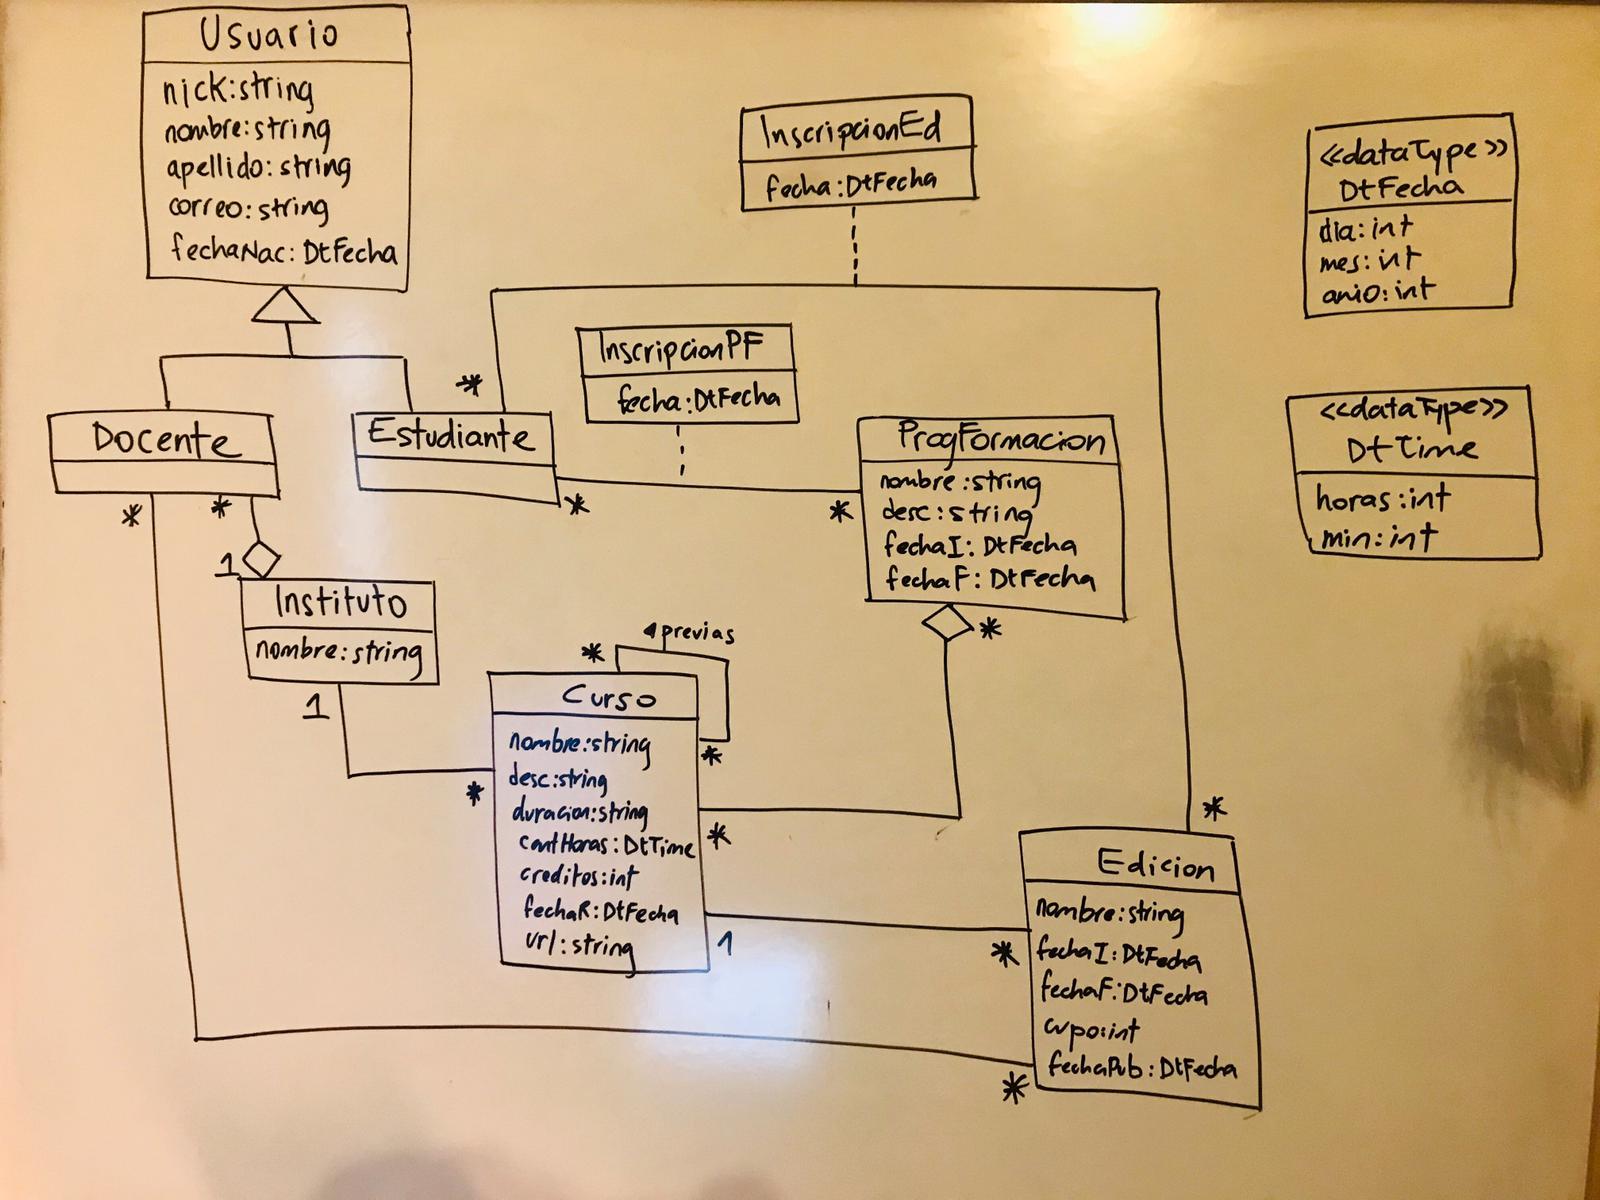 Usuario
nick:string
nombre:string
apellido:string
correo:string
fechaNac: DtFecha
InscripcionEd
fecha:DtFecha
<<dataType>>
DtFecha
dia:int
mes:int
anio:int
InscripcionPF
fecha:DtFecha
*
Docente
Estudiante
*
*
*
*
1
ProgFormacion
nombre:string
desc:string
fechaI: DtFecha
fechaF: DtFecha
*
<<dataType>>
DtTime
horas:int
min:int
Instituto
nombre:string
1
previas
*
Curso
nombre:string
desc:string
duracion:string
cantHoras:DtTime
creditos:int
fechaR:DtFecha
url:string
*
*
*
1
*
*
*
Edicion
nombre:string
fechaI:DtFecha
fechaF:DtFecha
cupo:int
fechaPub:DtFecha